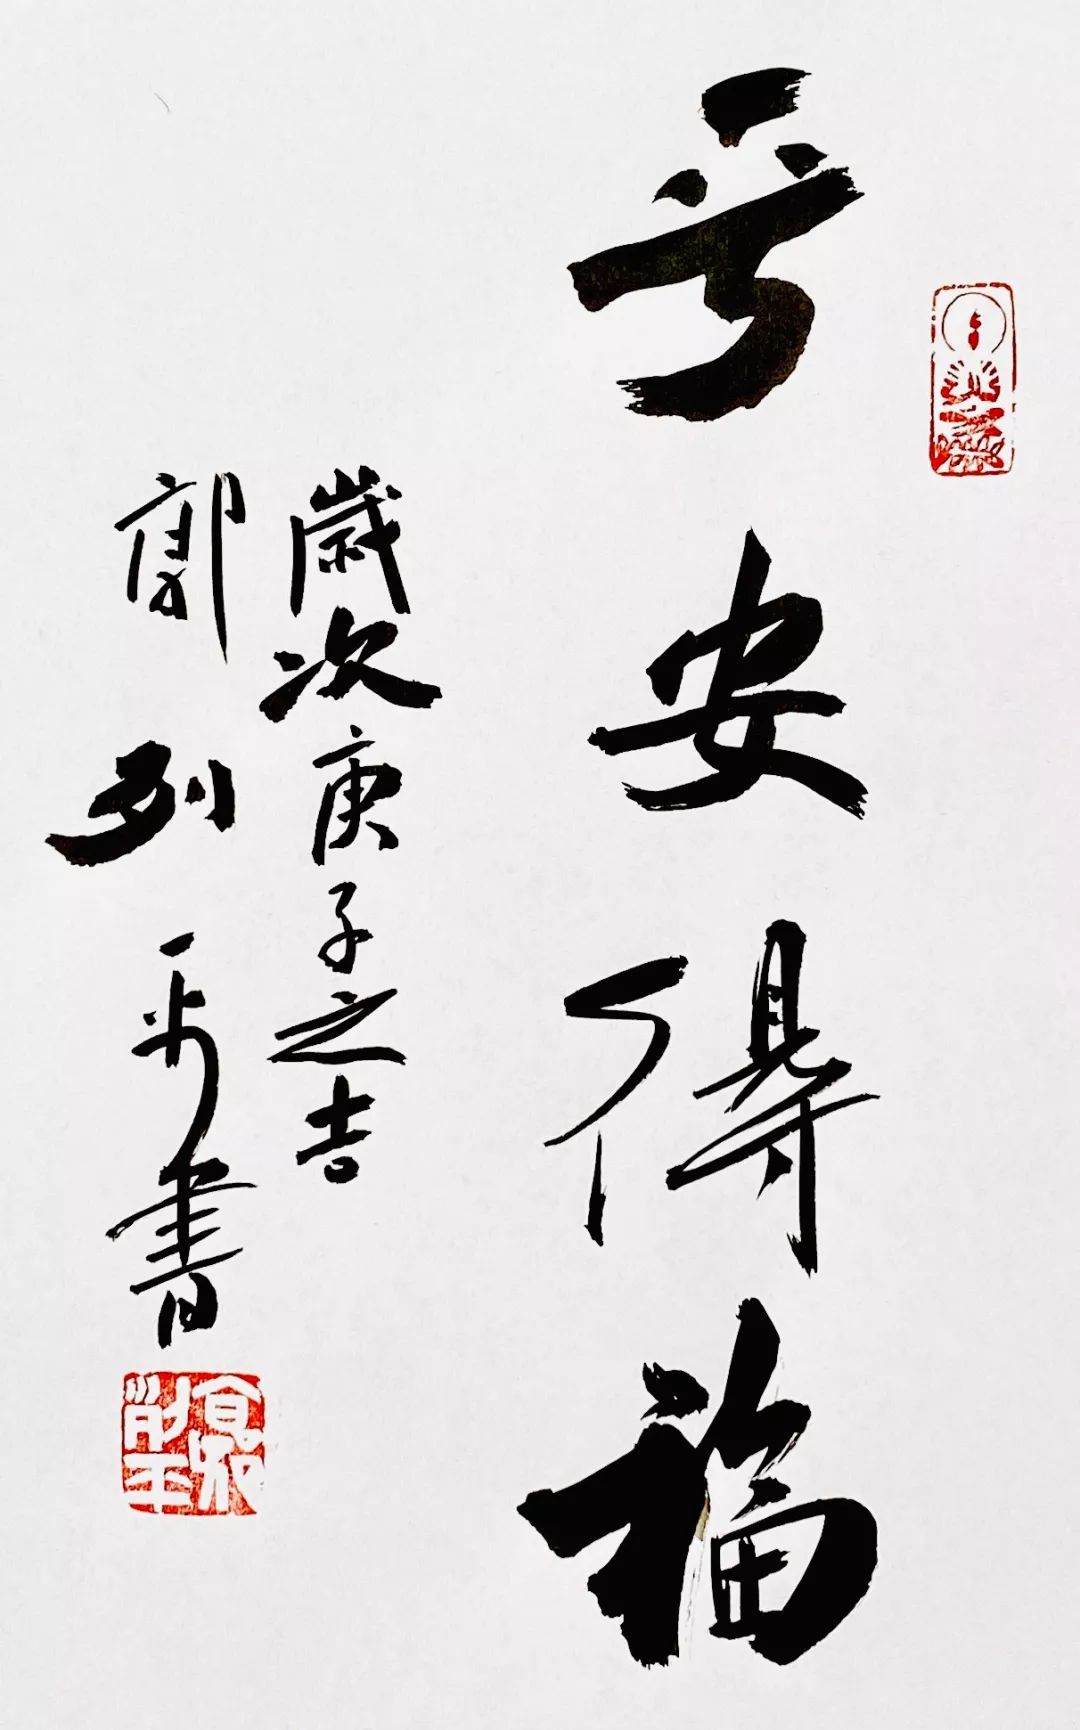 平安得福
歲次庚子之吉
郭列平書